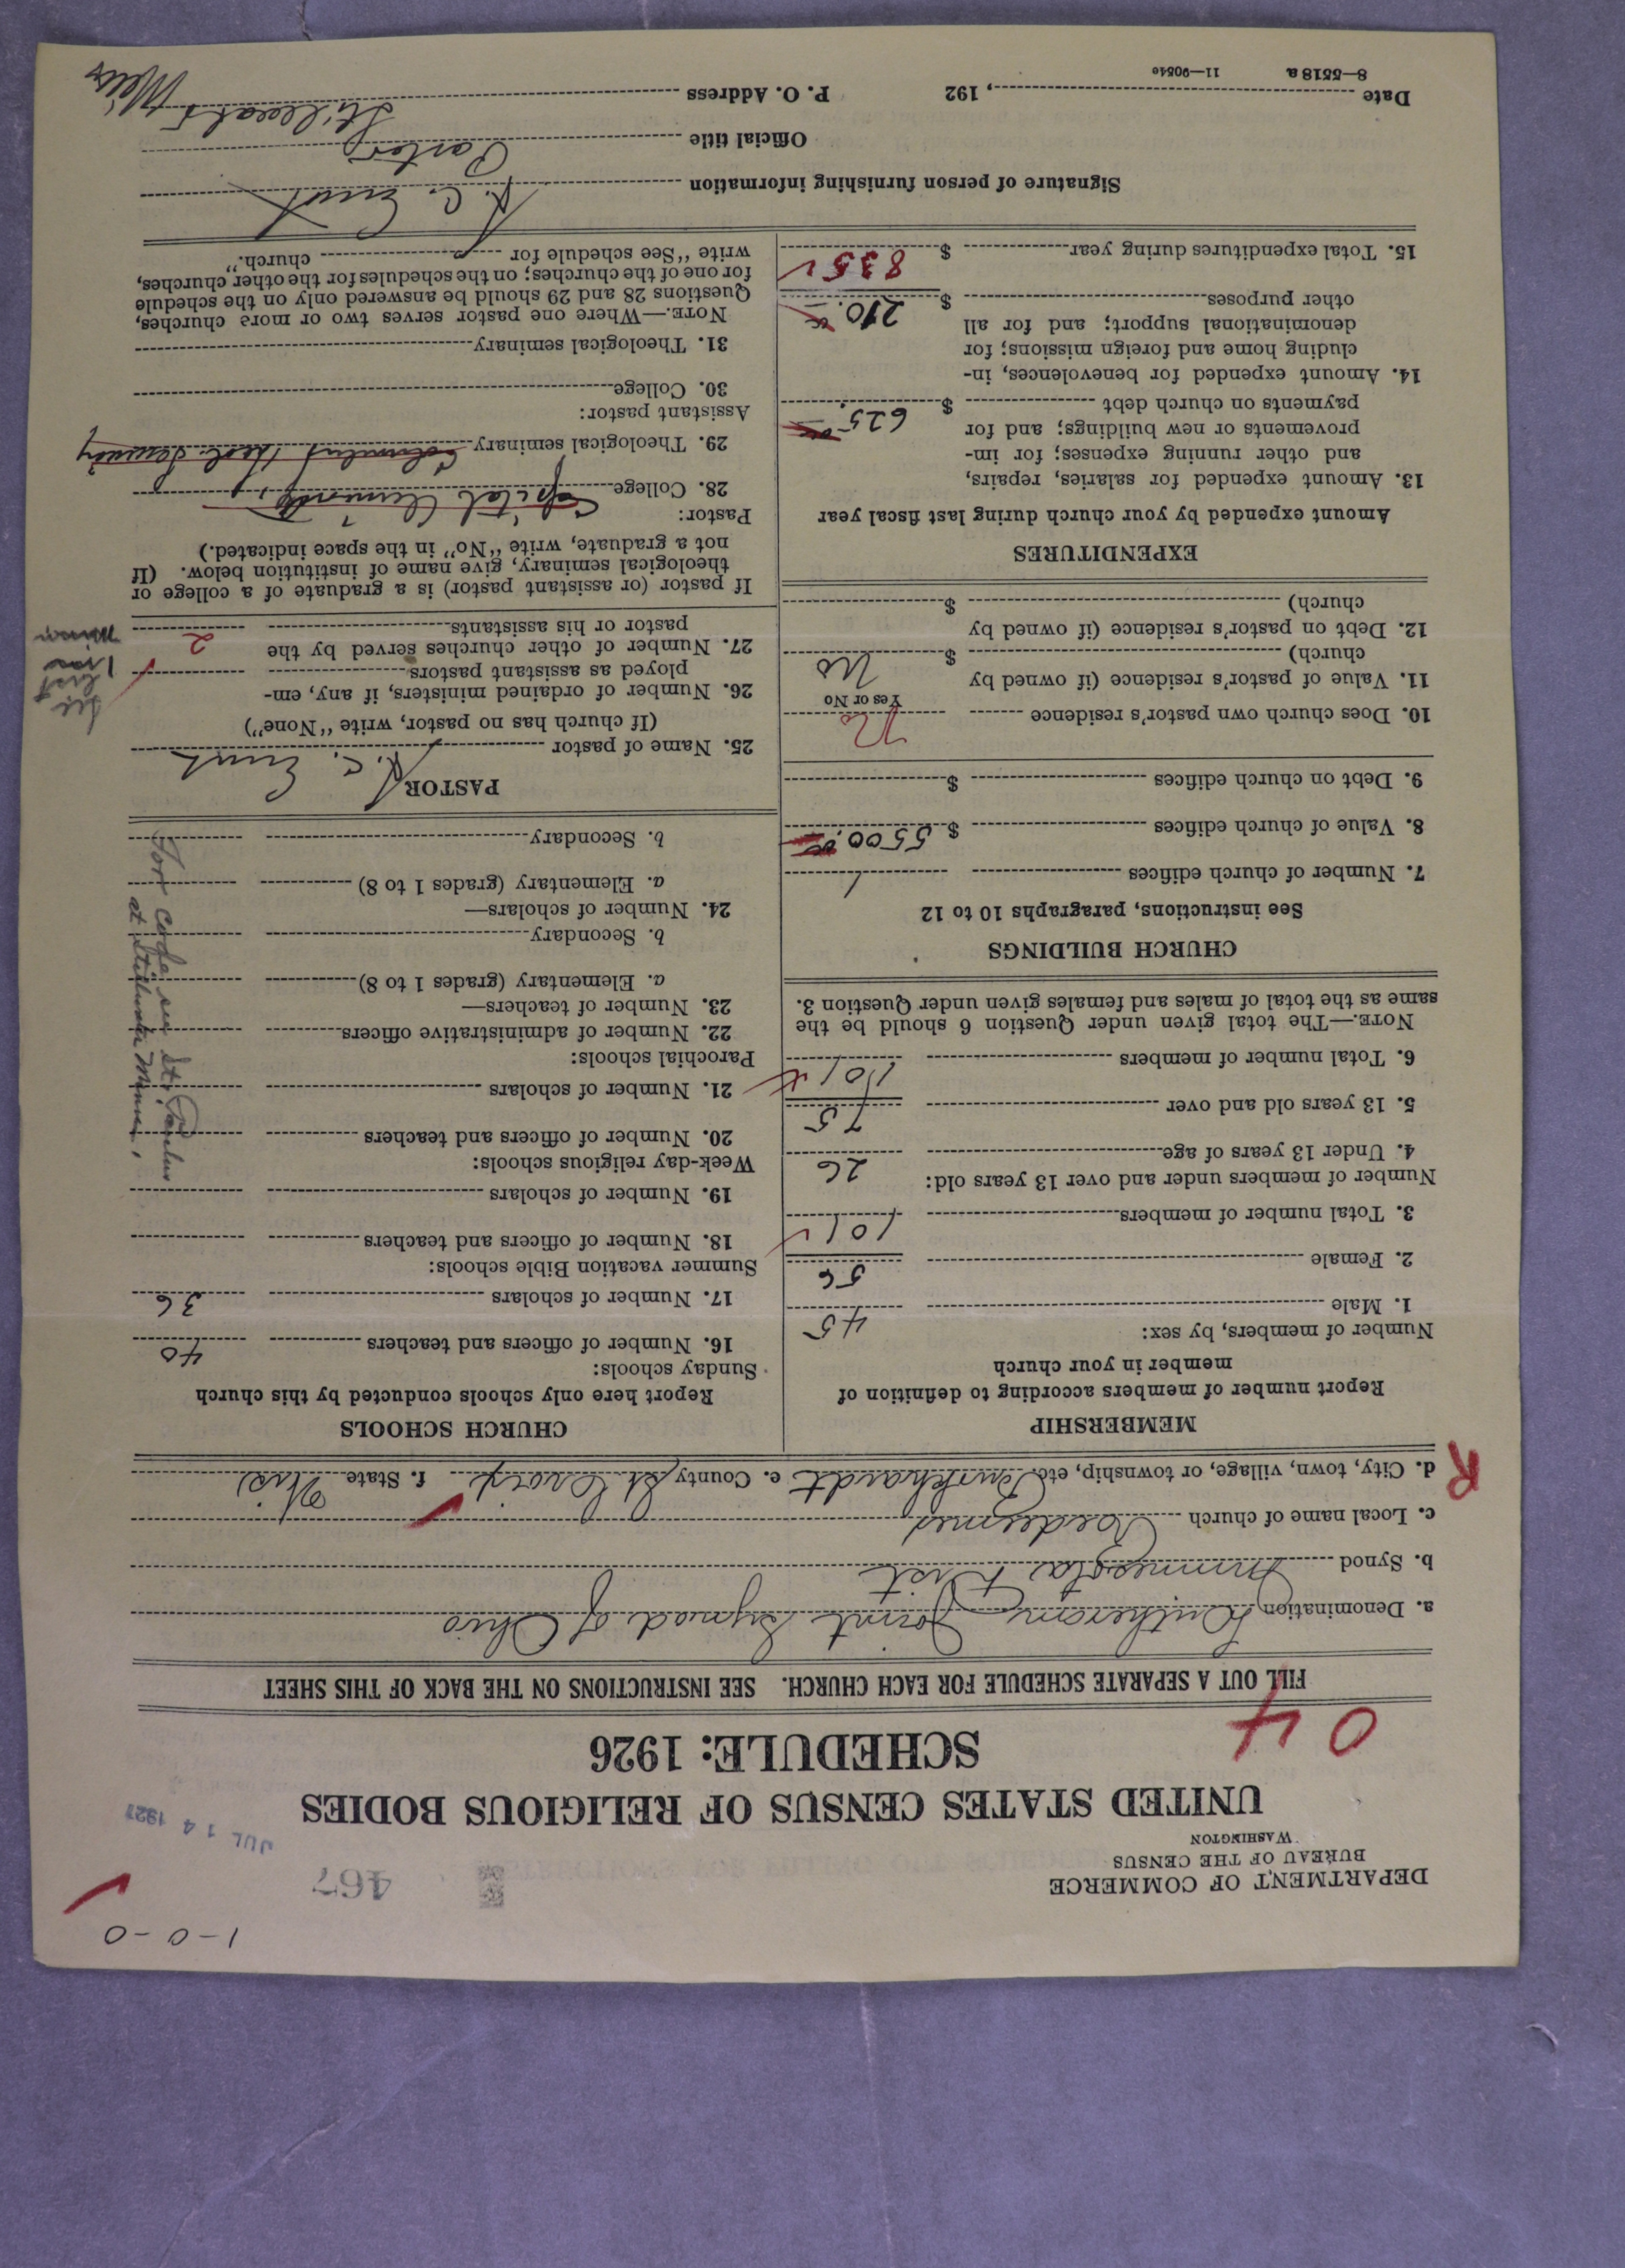 1-0-0
DEPARTMENT OF COMMERCE
BUREAU OF THE CENSUS
WASHINGTON
467
JUL 14 1927
UNITED STATES CENSUS OF RELIGIOUS BODIES
SCHEDULE: 1926
04
FILL OUT A SEPARATE SCHEDULE FOR EACH CHURCH. SEE INSTRUCTIONS ON THE BACK OF THIS SHEET
a. Denomination Lutheran Joint Synod of Ohio
b. Synod Minnesota Dist
c. Local name of church Redeemer
R
d. City, town, village, or township, etc. Burkhardt e. County St Croix f. State Wis
MEMBERSHIP
Report number of members according to definition of
member in your church
Number of members, by sex:
1. Male 45
2. Female 56
3. Total number of members 101
Number of members under and over 13 years old:
4. Under 13 years of age 26
5. 13 years old and over 75
6. Total number of members 101
NOTE.—The total given under Question 6 should be the
same as the total of males and females given under Question 3.
CHURCH BUILDINGS
See instructions, paragraphs 10 to 12
7. Number of church edifices 1
8. Value of church edifices $ 5500.00
9. Debt on church edifices $
10. Does church own pastor's residence No
Yes or No
11. Value of pastor's residence (if owned by
church) $ No
12. Debt on pastor's residence (if owned by
church) $
EXPENDITURES
Amount expended by your church during last fiscal year
13. Amount expended for salaries, repairs,
and other running expenses; for im-
provements or new buildings; and for
payments on church debt $ 625.
14. Amount expended for benevolences, in-
cluding home and foreign missions; for
denominational support; and for all
other purposes $ 210.
15. Total expenditures during year $ 835
CHURCH SCHOOLS
Report here only schools conducted by this church
Sunday schools:
16. Number of officers and teachers 40
17. Number of scholars 36
Summer vacation Bible schools:
18. Number of officers and teachers
19. Number of scholars
Week-day religious schools:
20. Number of officers and teachers
21. Number of scholars
Parochial schools:
22. Number of administrative officers
23. Number of teachers—
a. Elementary (grades 1 to 8)
b. Secondary
24. Number of scholars—
a. Elementary (grades 1 to 8)
b. Secondary
For code see St. Paulus
at Stillwater Minn.
PASTOR
25. Name of pastor C. Ernst
(If church has no pastor, write "None")
26. Number of ordained ministers, if any, em-
ployed as assistant pastors
27. Number of other churches served by the
pastor or his assistants 2
If pastor (or assistant pastor) is a graduate of a college or
theological seminary, give name of institution below. (If
not a graduate, write "No" in the space indicated.)
Pastor:
28. College Capital University
29. Theological seminary Theol. Seminary
Assistant pastor:
30. College
31. Theological seminary
NOTE.—Where one pastor serves two or more churches,
Questions 28 and 29 should be answered only on the schedule
for one of the churches; on the schedules for the other churches,
write "See schedule for church."
Signature of person furnishing information C. Ernst
Official title Pastor
Date , 192 P. O. Address Stillwater Minn
8—5518 a 11—9054e